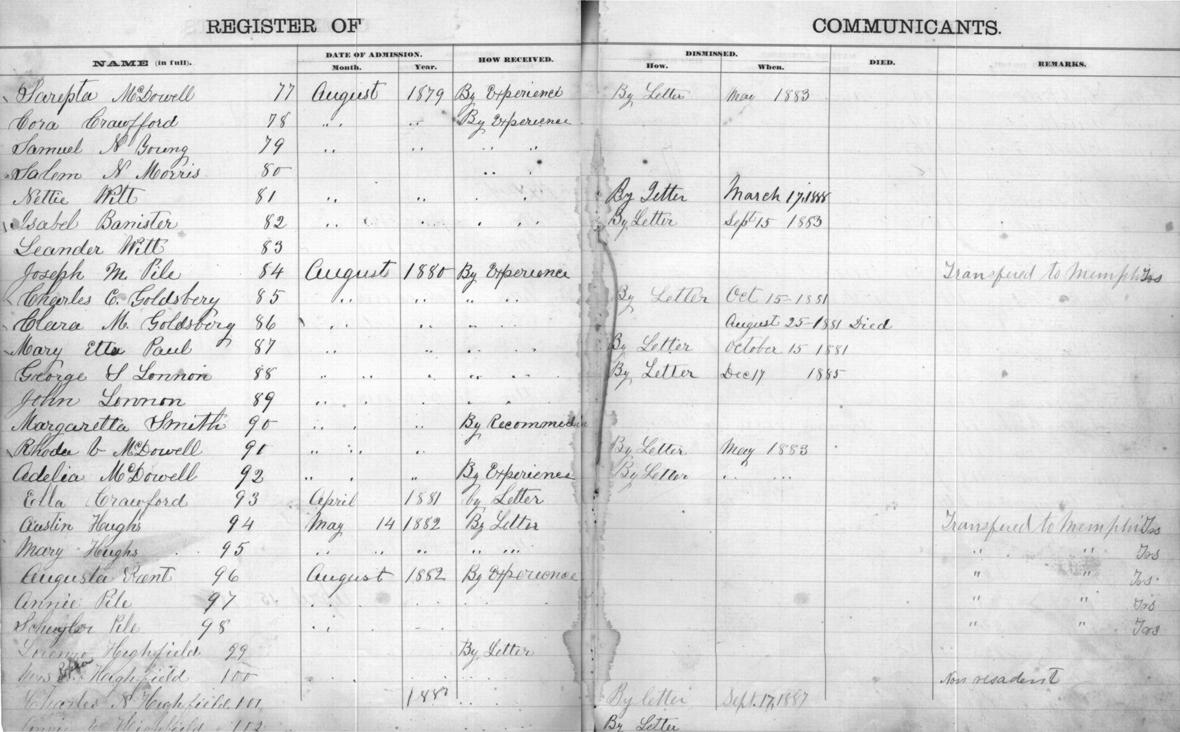 REGISTER OF COMMUNICANTS.
NAME (in full). DATE OF ADMISSION. HOW RECEIVED. DISMISSED. DIED. REMARKS.
Month. Year. How. When.
Sarepta McDowell 77 August 1879 By Experience By Letter May 1883
Cora Crawfford 78 " " " By Experience
Samuel N Young 79 " " " "
Salem N Morris 80 " "
Nettie Witt 81 " " " " " By Letter March 17, 1888
Isabel Banister 82 " " " " " By Letter Sept 15 1883
Leander Witt 83
Joseph M Pile 84 August 1880 By Experience Transfered to Memphis Trs
Charles C. Goldsbery 85 " " " " " By Letter Oct 15-1881
Clara M. Goldsberg 86 " " " " " August 25-1881 Died
Mary Etta Paul 87 " " " " " By Letter October 15 1881
George S Lonnon 88 " " " " " By Letter Dec 17 1885
John Lonnon 89 " " " " "
Margaretta Smith 90 " " " By Recommed
Rhoda McDowell 91 " " " " " By Letter May 1883
Adelia McDowell 92 " " " By Experience By Letter " "
Ella Crawford 93 April 1881 by Letter
Austin Hughs 94 May 14 1882 By Letter Transfered to Memphis Trs
Mary Hughs 95 " " " " " " " " Trs
Augusta Kent 96 August 1882 By Experience " " Trs
Annie Pile 97 " " " " " " Trs
Schuyler Pile 98 " " " " Trs
Highfield 99 By Letter
Mrs Highfield 100 " " " " Non resadent
Charles N Highfield 101 188 " " By letter Sept. 17, 1887
Highfield 102 By Letter